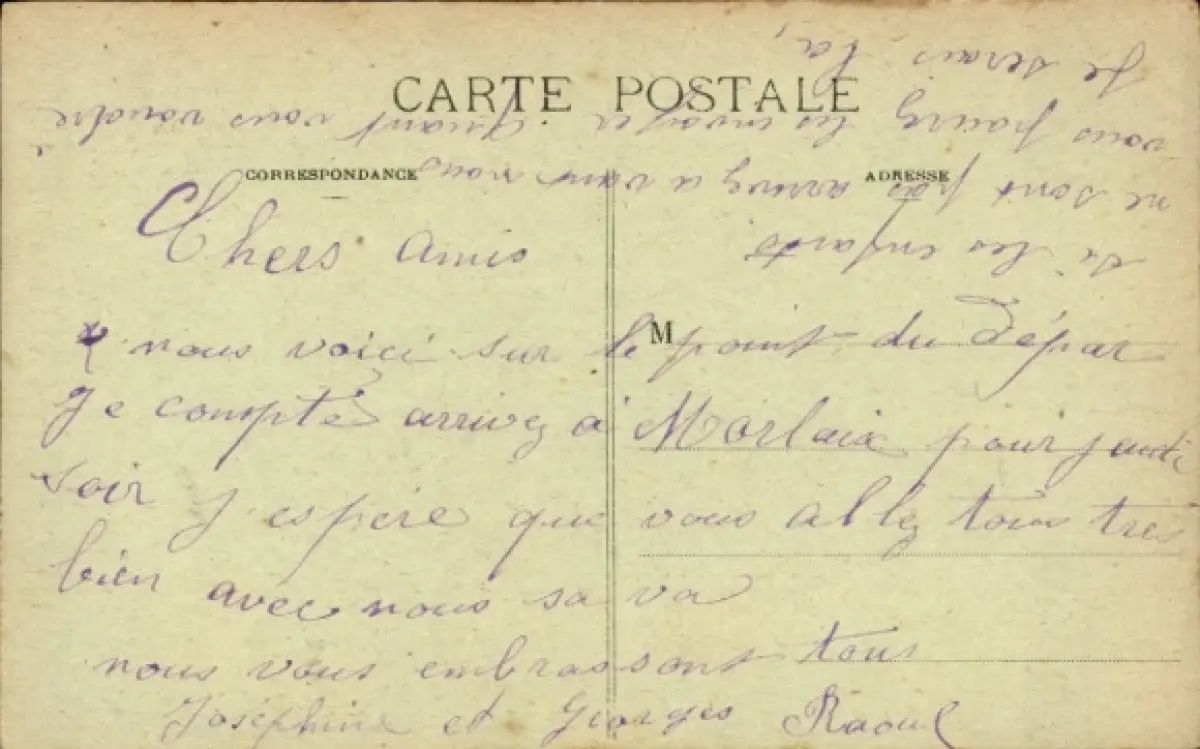 CARTE POSTALE
CORRESPONDANCE
ADRESSE
M
Chers amis
nous voici sur le point du dépar
Je compte arrivez a Morlaix pour jeudi
soir j'espère que vous allez tous tres
bien avec nous sa va
nous vous embrassont tous
Joséphine et Georges Raoul
Si les enfants
ne sont pas arrivez a vant nous
vous pourez les envoyer quant vous voudré
Je serais la,